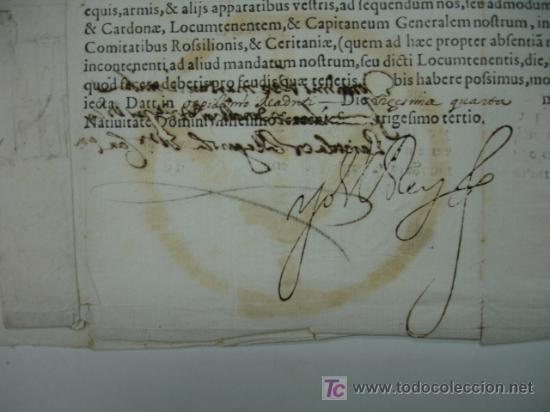 equis, armis, & alijs apparatibus vestris, ad sequendum nos, seu admodum
& Cardonæ, Locumtenentem, & Capitaneum Generalem nostrum, in
Comitatibus Rossilionis, & Ceritaniæ, (quem ad hæc propter absentiā n
incontinenti, ad aliud mandatum nostrum, seu dicti Locumtenentis, die,
quod facere debetis pro feudis quæ tenetis, bis habere possimus, mo
iecta. Datt. in oppido de Die vicesima quarta
Natiuitate Domini Millesimo trigesimo tertio.
Yo el Rey
TC www.todocoleccion.net